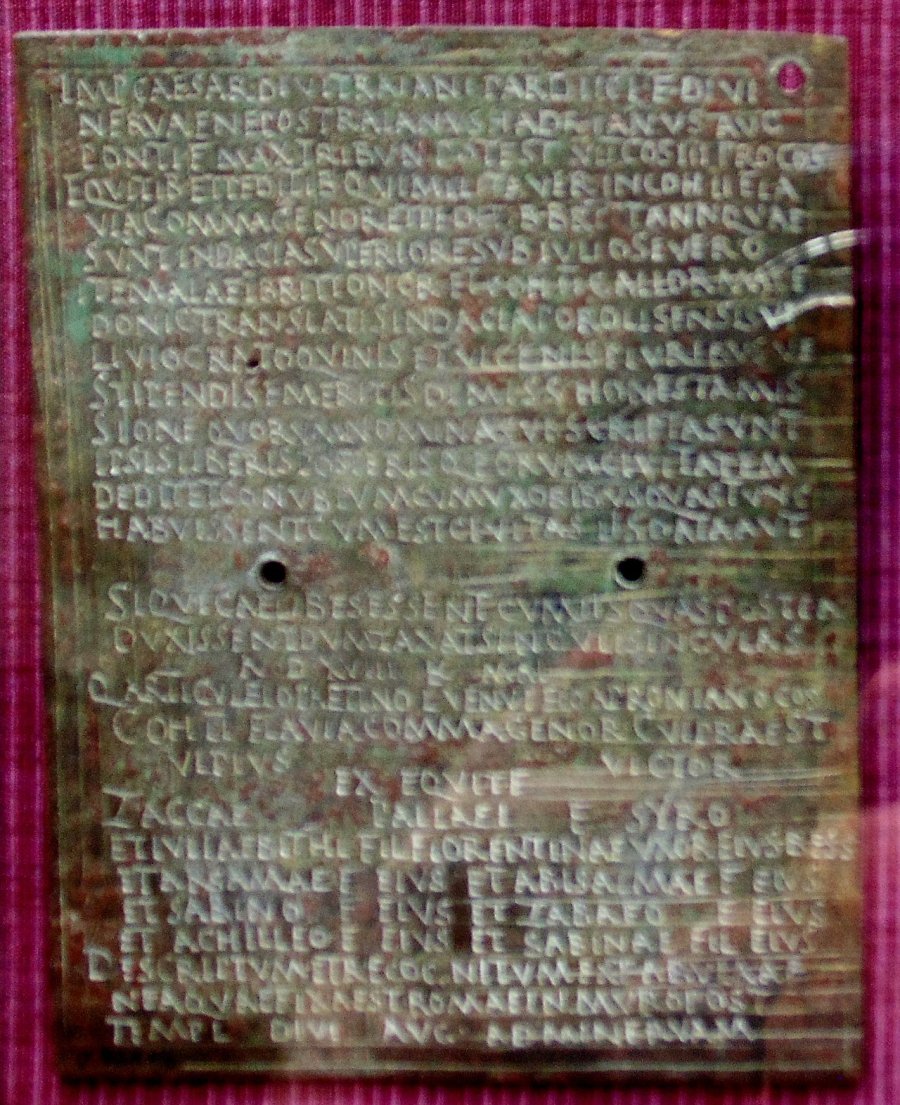 IMP CAESAR DIVI TRAIANI PARTHIC F DIVI
NERVAE NEPOS TRAIANVS HADRIANVS AVG
PONTIF MAX TRIBVN POTEST COS III PROCOS
EQVITIB ET PEDITIB QVI MILITAVER IN COH II FLA
VIA COMMAGENOR ET PEDIT BRITANN QVAE
SVNT IN DACIA SVPERIORE SVB IVLIO SEVERO
ITEM ALAE I BRITTONC R ET COH II GALLOR
DONIC TRANSLATIS IN DACIA POROLISENSI SV
LIVIO GRATO QVINIS ET VICENIS PLVRIBVSVE
STIPENDIS EMERITIS DIMISS HONESTA MIS
SIONE QVORVM NOMINA SVBSCRIPTA SVNT
IPSIS LIBERIS POSTERISQ EORVM CIVITATEM
DEDIT ET CONVBIVM CVM VXORIBVS QVAS TVNC
HABVISSENT CVM EST CIVITAS IIS DATA AVT
SI QVI CAELIBES ESSENT CVM IIS QVAS POSTEA
DVXISSENT DVMTAXAT SINGVLI SINGVLAS
COS
COH II FLAVIA COMMAGENOR CVI PRAEST
VLPIVS VICTOR
EX EQVITE
ZACCAE PALLAEI F SYRO
ET IVLIAE BITHI FIL FLORENTINAE VXOR EIVS BESS
ET ARSAMAE F EIVS ET ABISALMAE F EIVS
ET SABINO F EIVS ET ZABAEO F EIVS
ET ACHILLEO F EIVS ET SABINAE FIL EIVS
DESCRIPTVM ET RECOGNITVM EX TABVLA AE
NEA QVAE FIXA EST ROMAE IN MVRO POS
T TMPL DIVI AVG AD MINERVAM